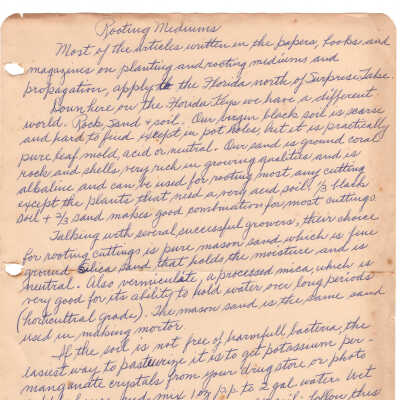 Rooting Mediums
Most of the articles written in the papers, books and
magazines on planting and rooting mediums and
propagation, apply to the Florida north of Surprise Lake.
Down here on the Florida Keys we have a different
world. Rock, sand & soil. Our virgin black soil is scarse
and hard to find except in pot holes, but it is practically
pure leaf mold, acid or neutral. Our sand is ground coral
rock and shells, very rich in growing qualities and is
alkaline and can be used for rooting most any cutting
except the plants that need a very acid soil. 1/3 black
soil + 2/3 sand makes good combination for most cuttings
Talking with several successful growers, their choice
for rooting cuttings is pure mason sand, which is fine
ground silica sand that holds the moisture and is
neutral. Also vermiculate, a processed mica, which is
very good for its ability to hold water over long periods
(horticultral grade). The mason sand is the same sand
used in making morter.
If the soil is not free of harmfull bacteria, the
easiest way to pasteurize it is to get potassium per-
mangandte crystals from your drug store or photo
mix 1 oz pp to 2 gal water. Wet
follow this